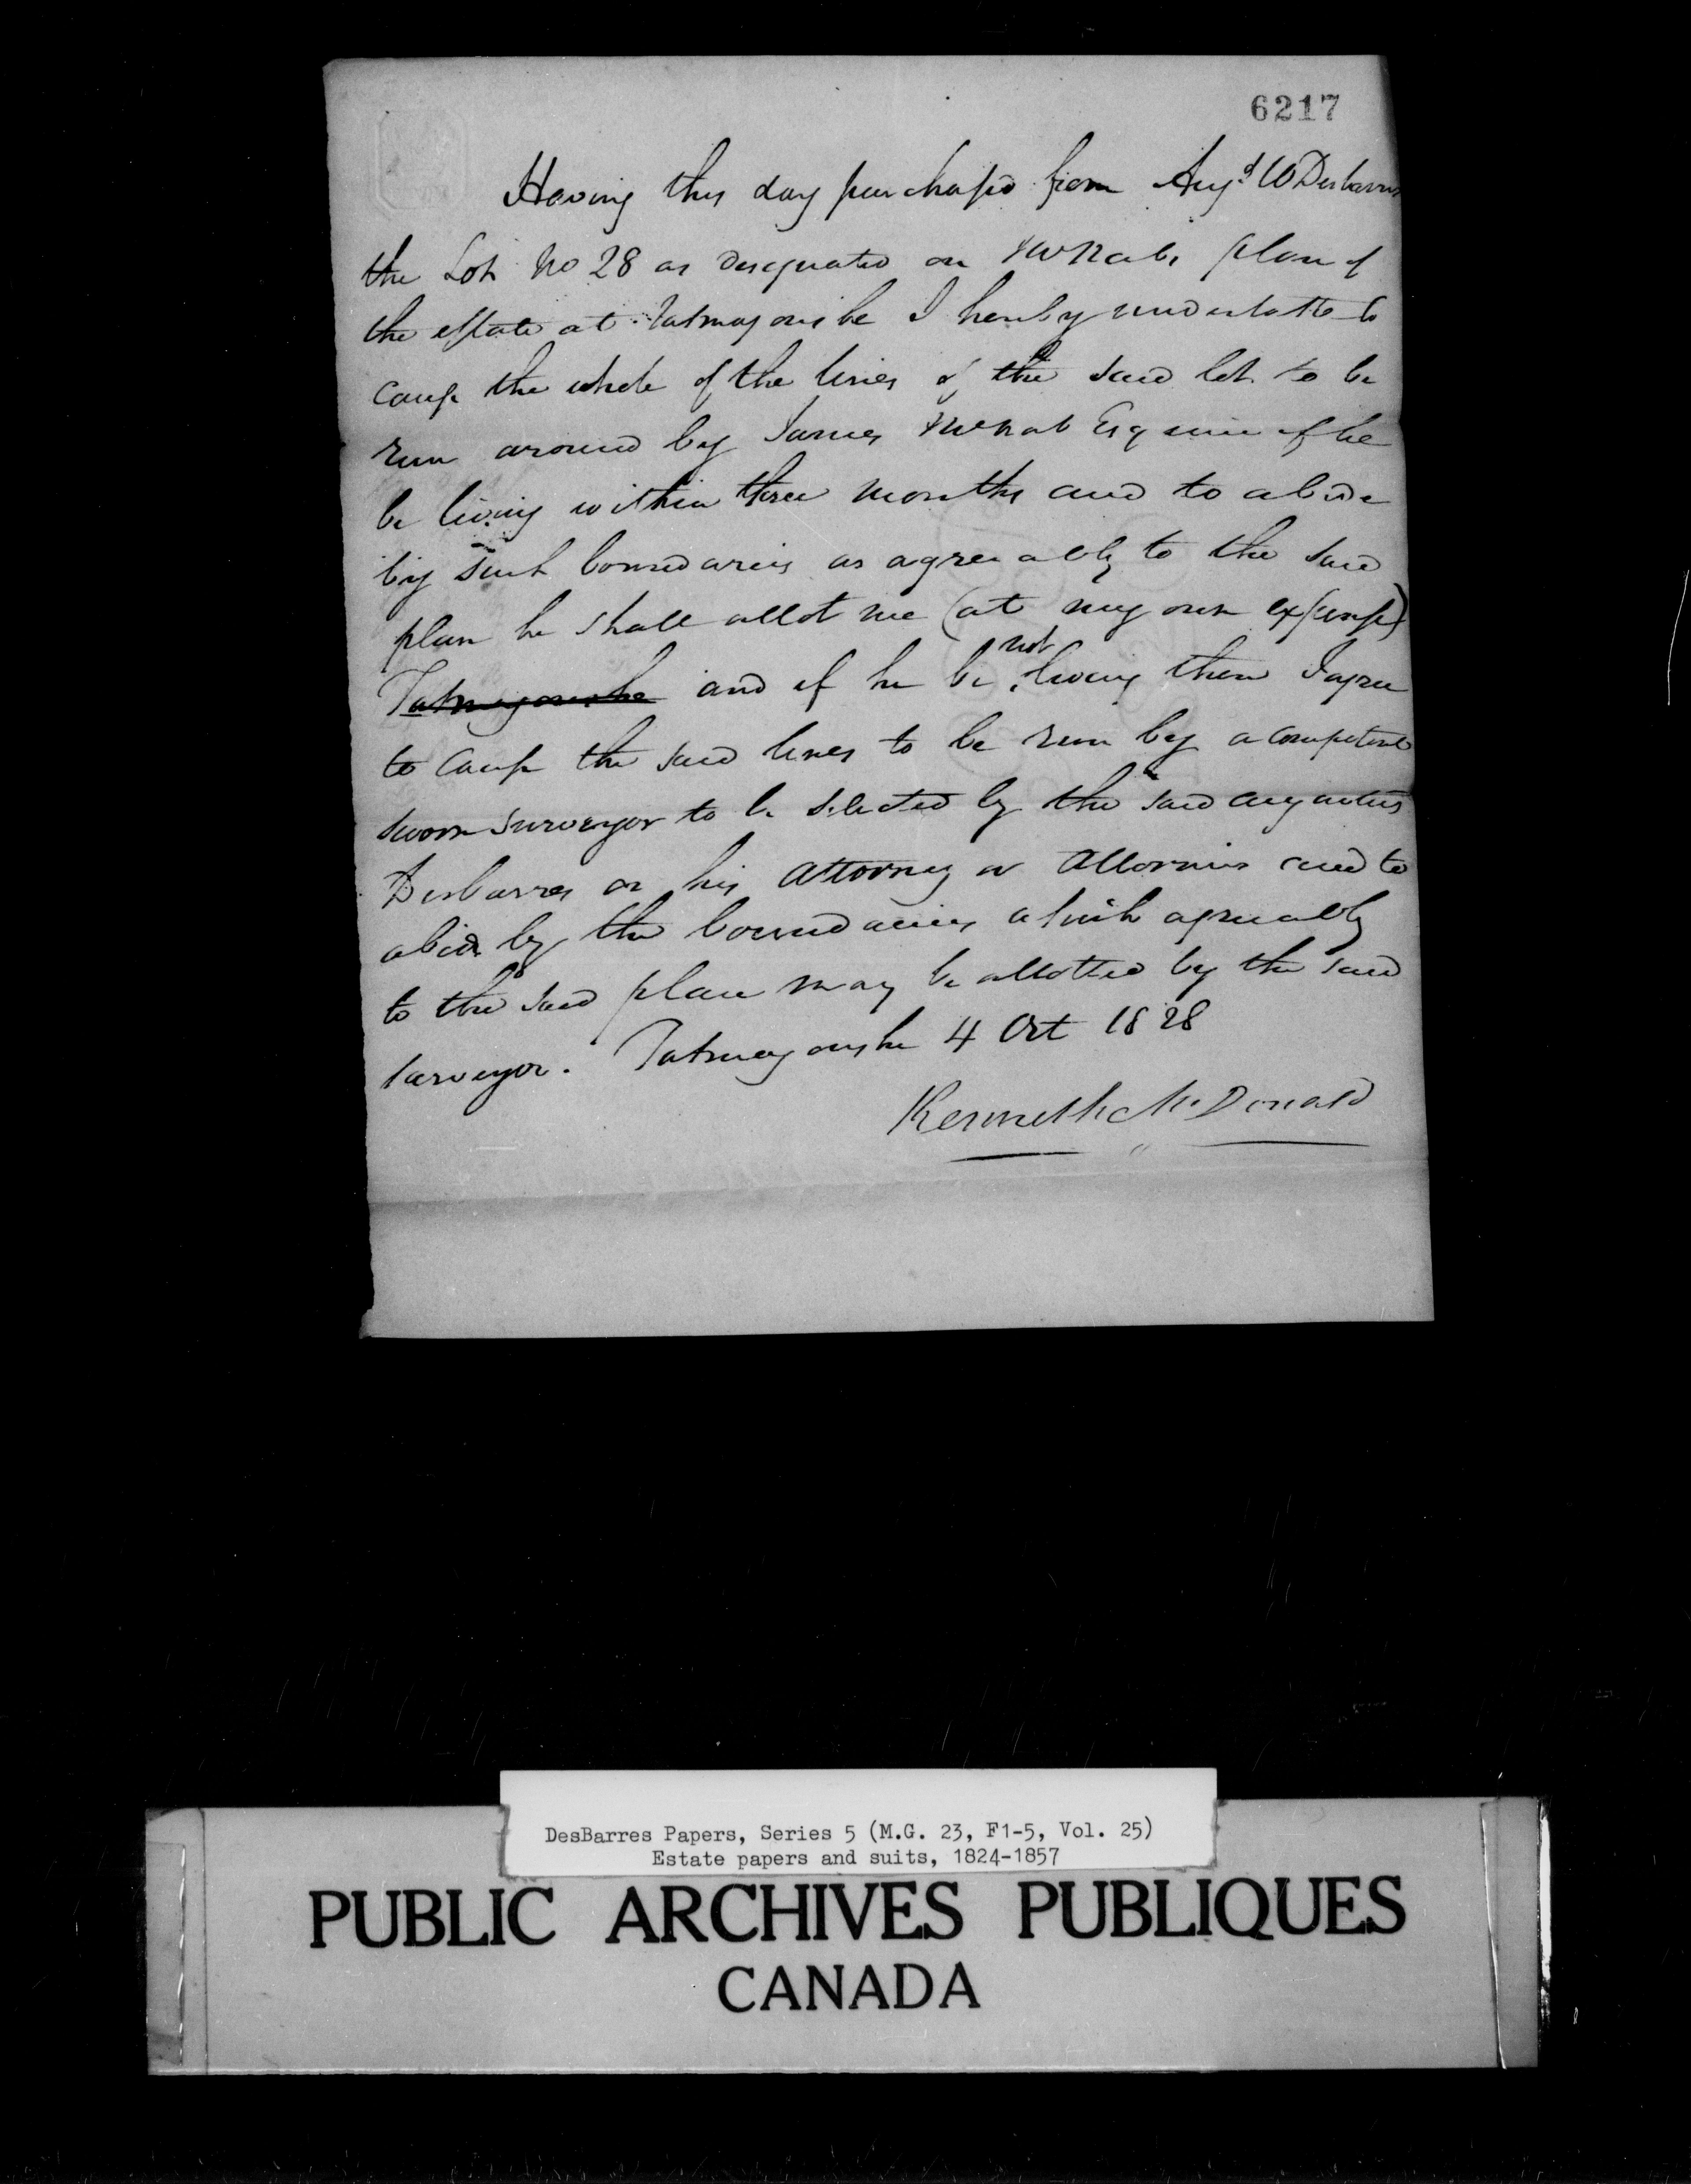 6217
Having this day purchased from Augs W Desbarres
the Lot No 28 as designated on McNabs plan of
the estate at Tatmagouche I hereby undertake to
cause the whole of the lines of the said lot to be
run around by James McNab Esquire if he
be living within three months and to abide
by such boundaries as agreeably to the said
plan he shall allot me (at my own expense)
Tatmagouche and if he be not living then I agree
to cause the said lines to be run by a competent
sworn surveyor to be selected by the said Augustus
Desbarres or his Attorney or Attornies and to
abide by the boundaries which agreeably
to the said plan may be allotted by the said
surveyor. Tatmagouche 4 Oct 1828
Kenneth McDonald
DesBarres Papers, Series 5 (M.G. 23, F1-5, Vol. 25)
Estate papers and suits, 1824-1857
PUBLIC ARCHIVES PUBLIQUES
CANADA